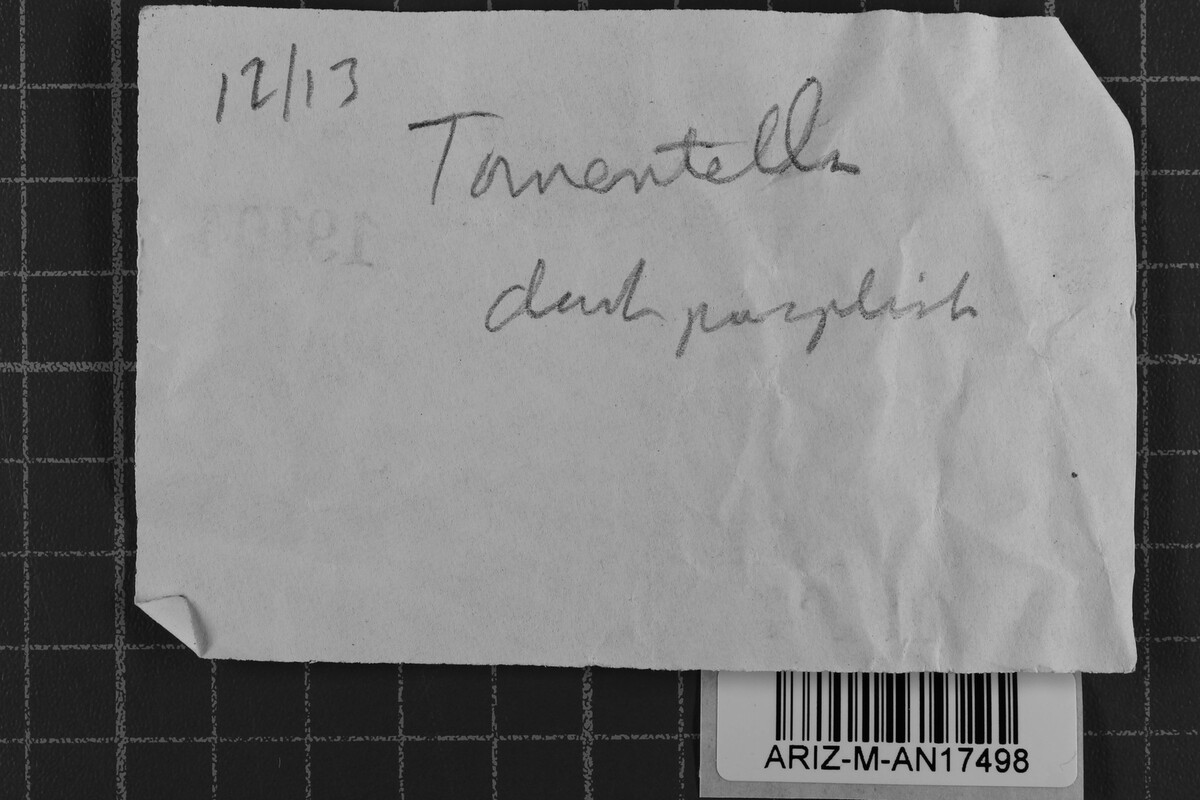 12/13
Tomentella
dark purplish
ARIZ-M-AN17498